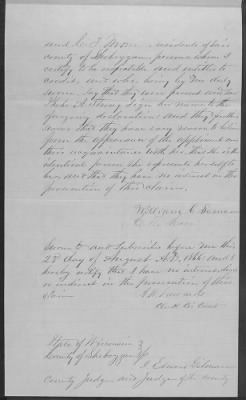 and C. F. Moore residents of said
county of Sheboygan persons whom I
certify to be reputable and entitled to
credit and who being by me duly
sworn Say that they were present and saw
A. Strong Sign her name to the
foregoing declaration and they further
swear that they have every reason to believe
from the appearance of the applicant and
their acquaintance with her that she is the
identical person she represents herself to
be and that they have no interest in the
prosecution of this claim
William C.
C. F. Moore
Sworn to and Subscribed before me this
28 day of August A.D. 1866 and I
hereby certify that I have no interest direct
or indirect in the prosecution of this
claim
Clerk Cir. Court
State of Wisconsin
County of Sheboygan
I Edward
County Judge and Judge of the county